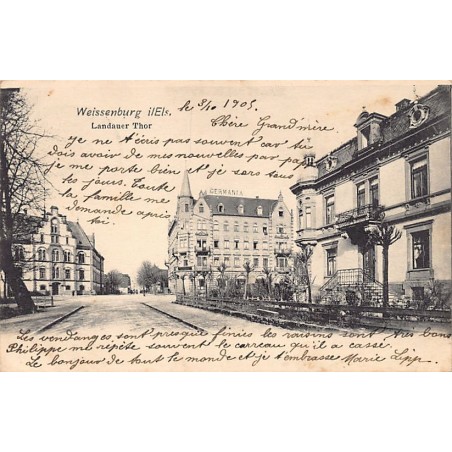 Weissenburg i/Els.
Landauer Thor
le 3/10 1905
Chère Grand'mère
je ne t'écris pas souvent car tu
dois avoir de mes nouvelles par papa
je me porte bien et j'espère
les jours. Toute
la famille me
demande après
GERMANIA
Les vendanges sont presque finies les raisins sont très bons
Philippe me répète souvent le carreau qu'il a cassé.
Le bonjour de tout le monde et je t'embrasse Marie Lipp